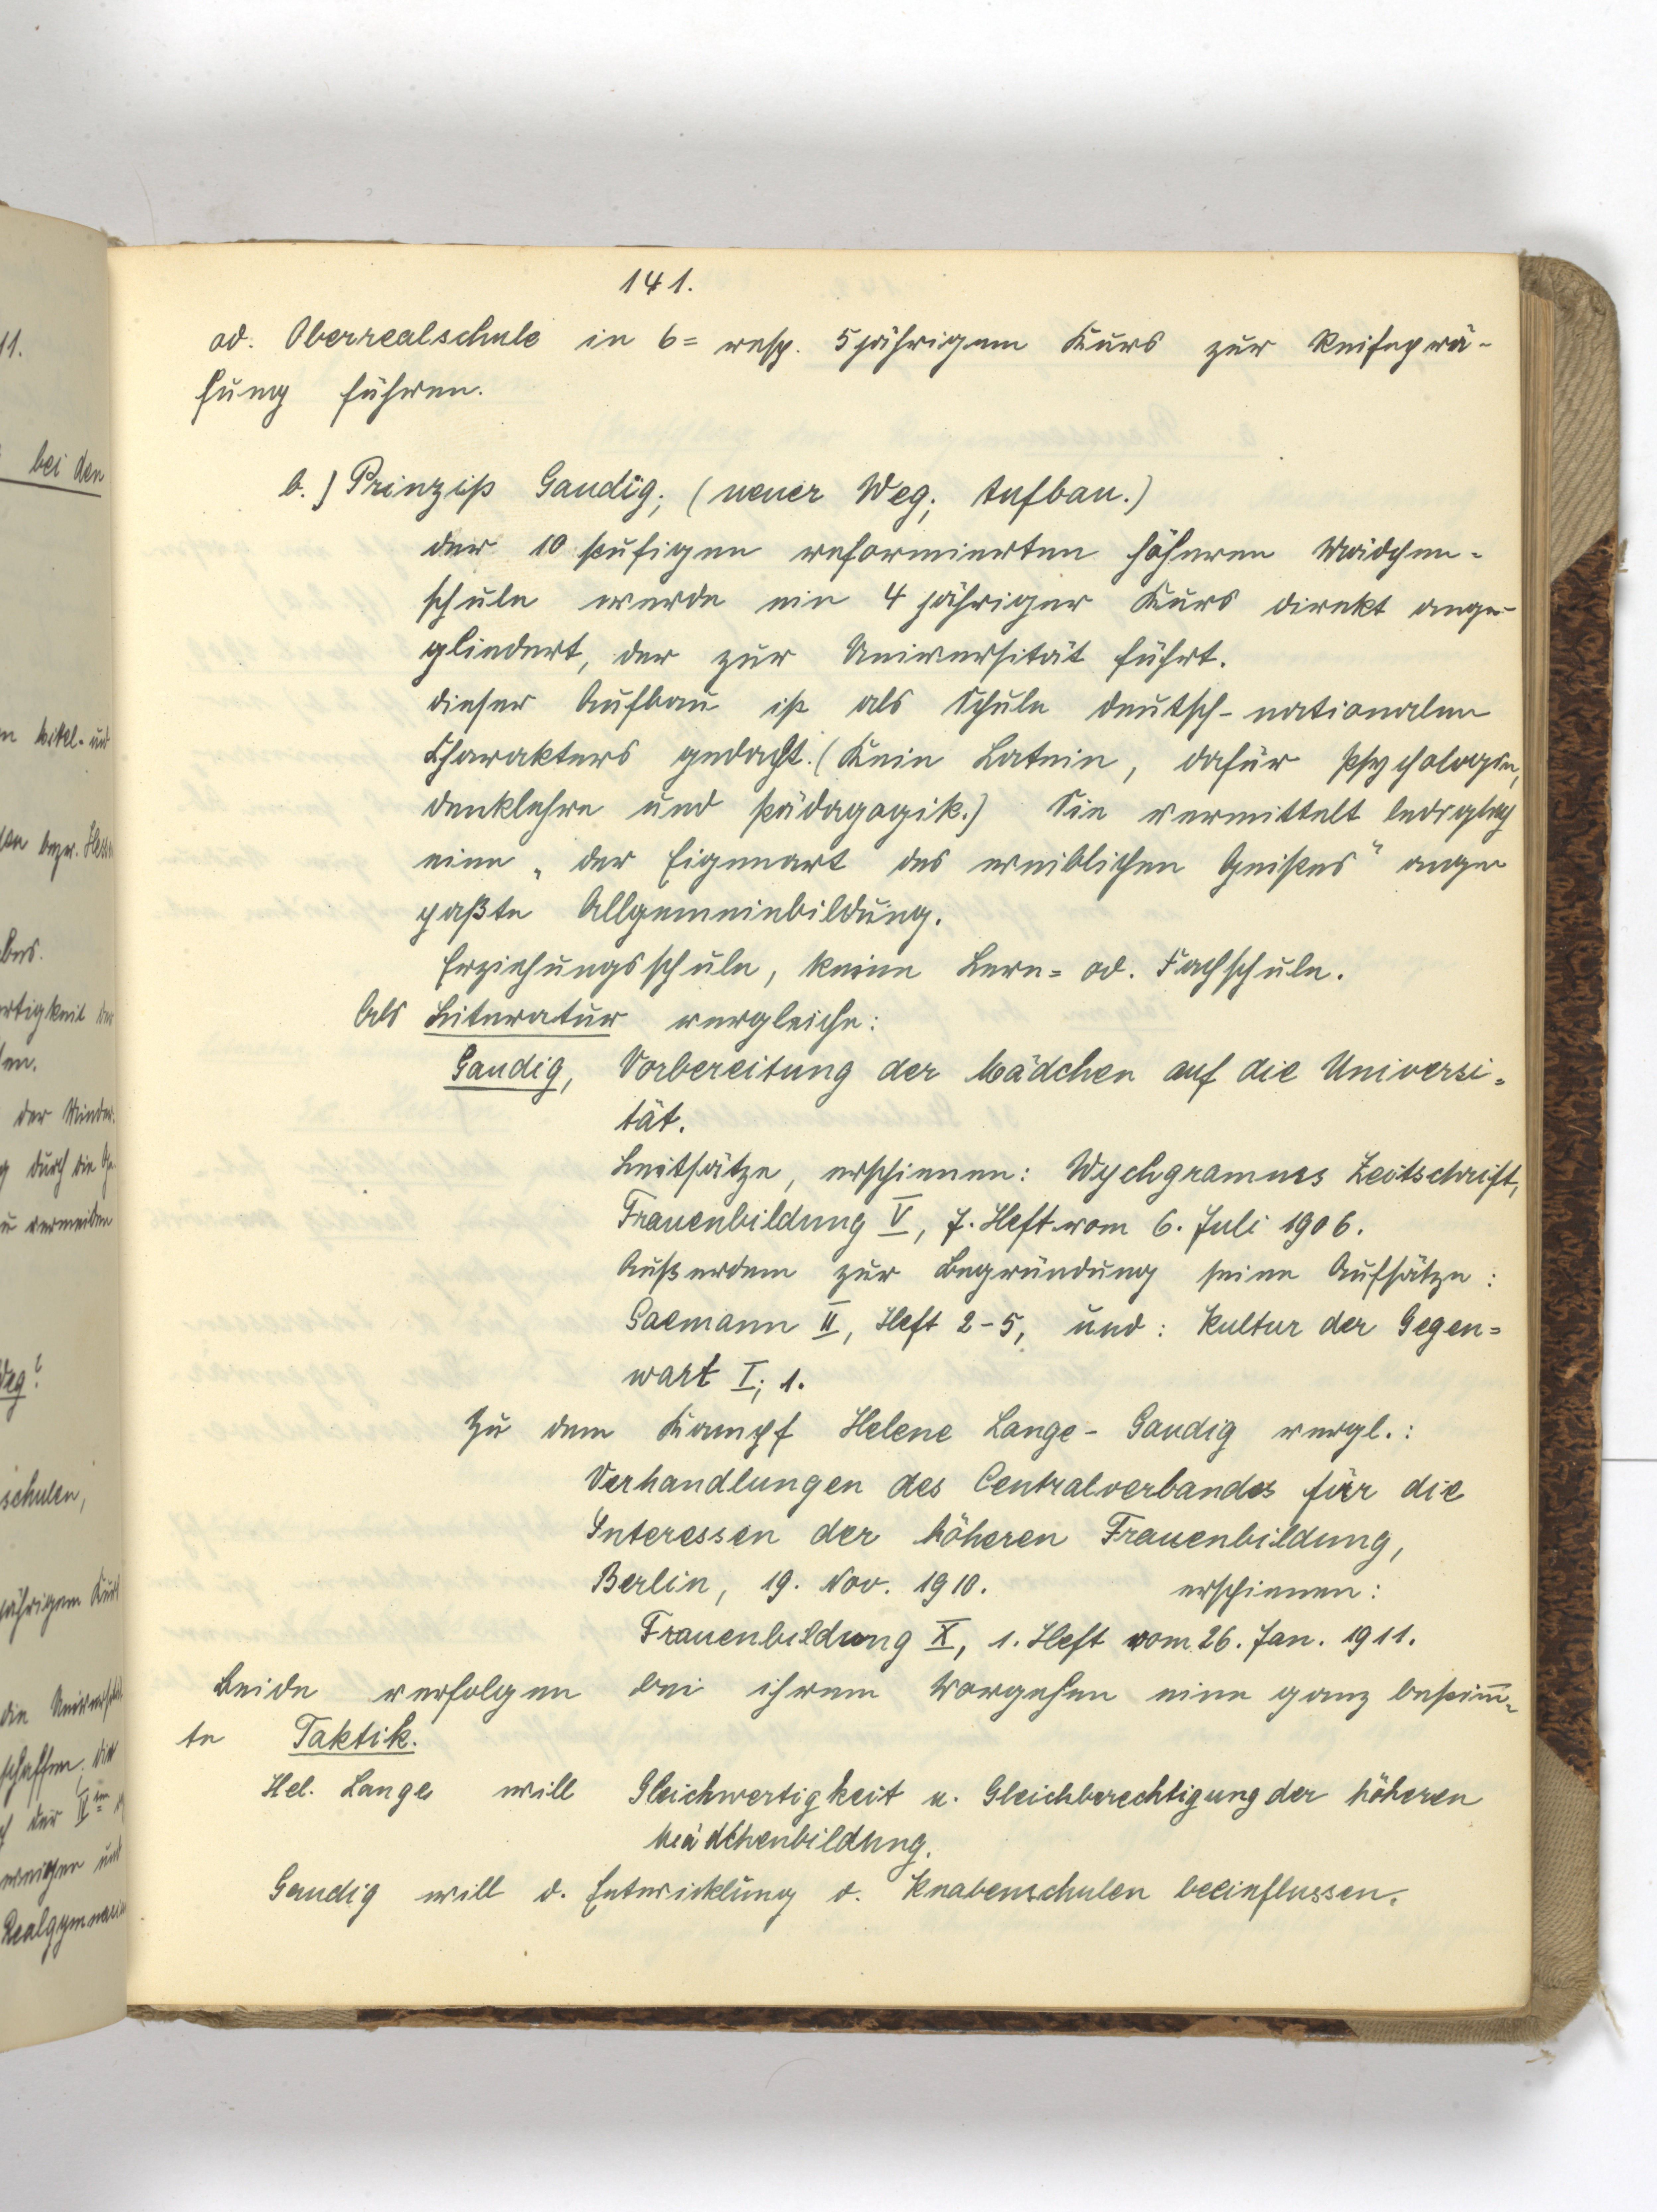 141.
od. Oberrealschule in 6= resp. 5jährigem Kurs zur Reifeprü-
fung führen.
b.) Prinzip Gaudig; (neuer Weg; Aufbau.)
der 10 stufigen reformierten höheren Mädchen-
schule werde ein 4 jähriger Kurs direkt ange-
gliedert, der zur Universität führt.
dieser Aufbau ist als Schule deutsch-nationalen
Charakters gedacht. (Kein Latein, dafür Psychologie,
denklehre und Pädagogik.) Sie vermittelt lediglich
eine „der Eigenart des weiblichen Geistes" ange
paßte Allgemeinbildung.
Erziehungsschule, keine Lern= od. Fachschule.
Als Literatur vergleiche:
Gaudig, Vorbereitung der Mädchen auf die Universi=
tät.
Leitsätze, erschienen: Wychgrammes Zeitschrift,
Frauenbildung V, 7. Heft vom 6. Juli 1906.
Außerdem zur Begründung seine Aufsätze:
Saemann II, Heft 2-5, und: Kultur der Gegen=
wart I; 1.
Zu dem Kampf Helene Lange- Gaudig vergl.:
Verhandlungen des Centralverbandes für die
Interessen der höheren Frauenbildung,
Berlin, 19. Nov. 1910. erschienen:
Frauenbildung X, 1. Heft vom 26. Jan. 1911.
Beide verfolgen bei ihrem Vorgehen eine ganz bestim̄-
te Taktik.
Hel. Lange will Gleichwertigkeit u. Gleichberechtigung der höheren
Mädchenbildung.
Gaudig will d. Entwicklung d. Knabenschulen beeinflussen.
11.
bei den
und
bezw.
rtigkeit
en.
durch die
zu vermeiden
Weg?
schulen,
jährigem Kurs
die
schaffen; die
der IVten
weniger und